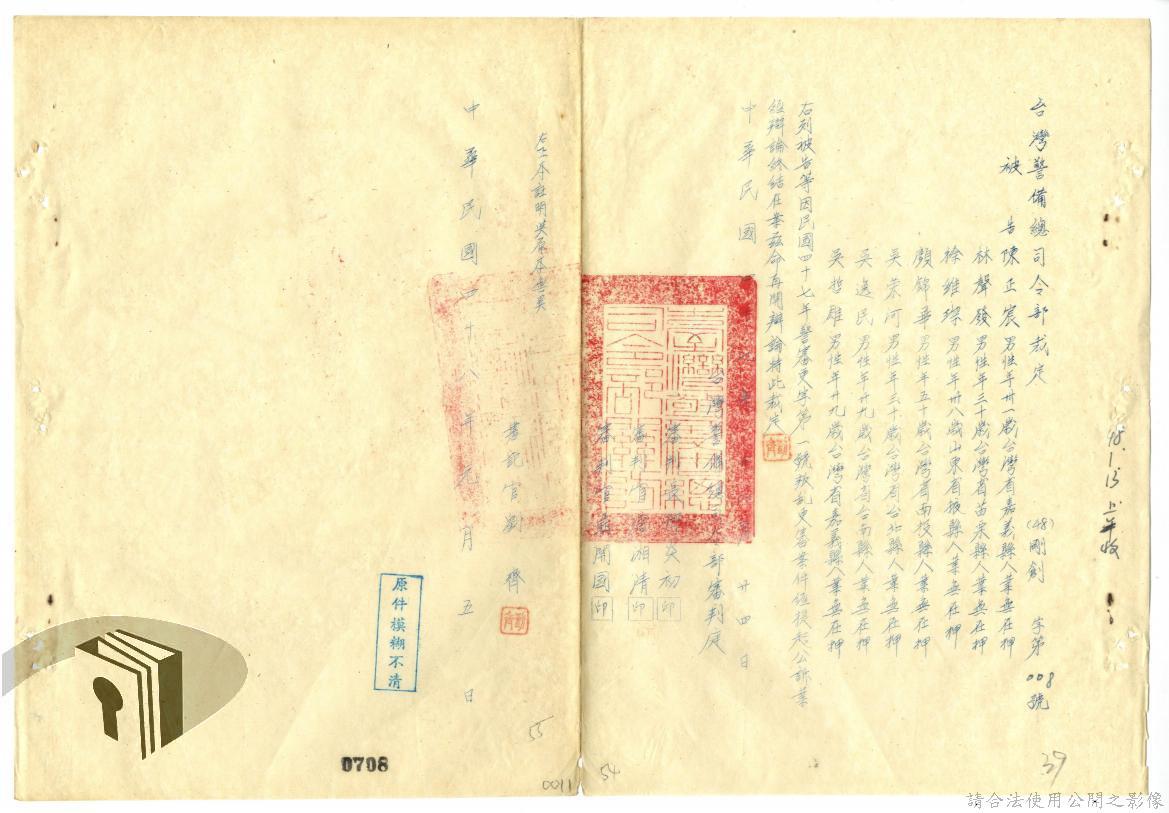 台灣警備總司令部裁定
(48)剛創字第008號
48.1.15上午收
被告陳正宸男性年卅一歲台灣省嘉義縣人業無在押
林聲發男性年三十歲台灣省苗栗縣人業無在押
徐維琛男性年卅八歲山東省掖縣人業無在押
顏錦華男性年五十歲台灣省南投縣人業無在押
吳崇河男性年三十歲台灣省台北縣人業無在押
吳逸民男性年廿九歲台灣省台南縣人業無在押
吳哲雄男性年廿九歲台灣省嘉義縣人業無在押
右列被告等因民國四十七年警審更字第一號叛乱更審案件經提起公訴業
經辯論終結在案茲命再開辯論特此裁定
中華民國 廿四日
台灣警備總司令部審判庭
審判 初 印
審判官 湘清 印
審判官 開國 印
右正本證明與原本無異
書記官劉齊
中華民國四十八年元月五日
原件模糊不清
0708
0011
55
54
39
請合法使用公開之影像